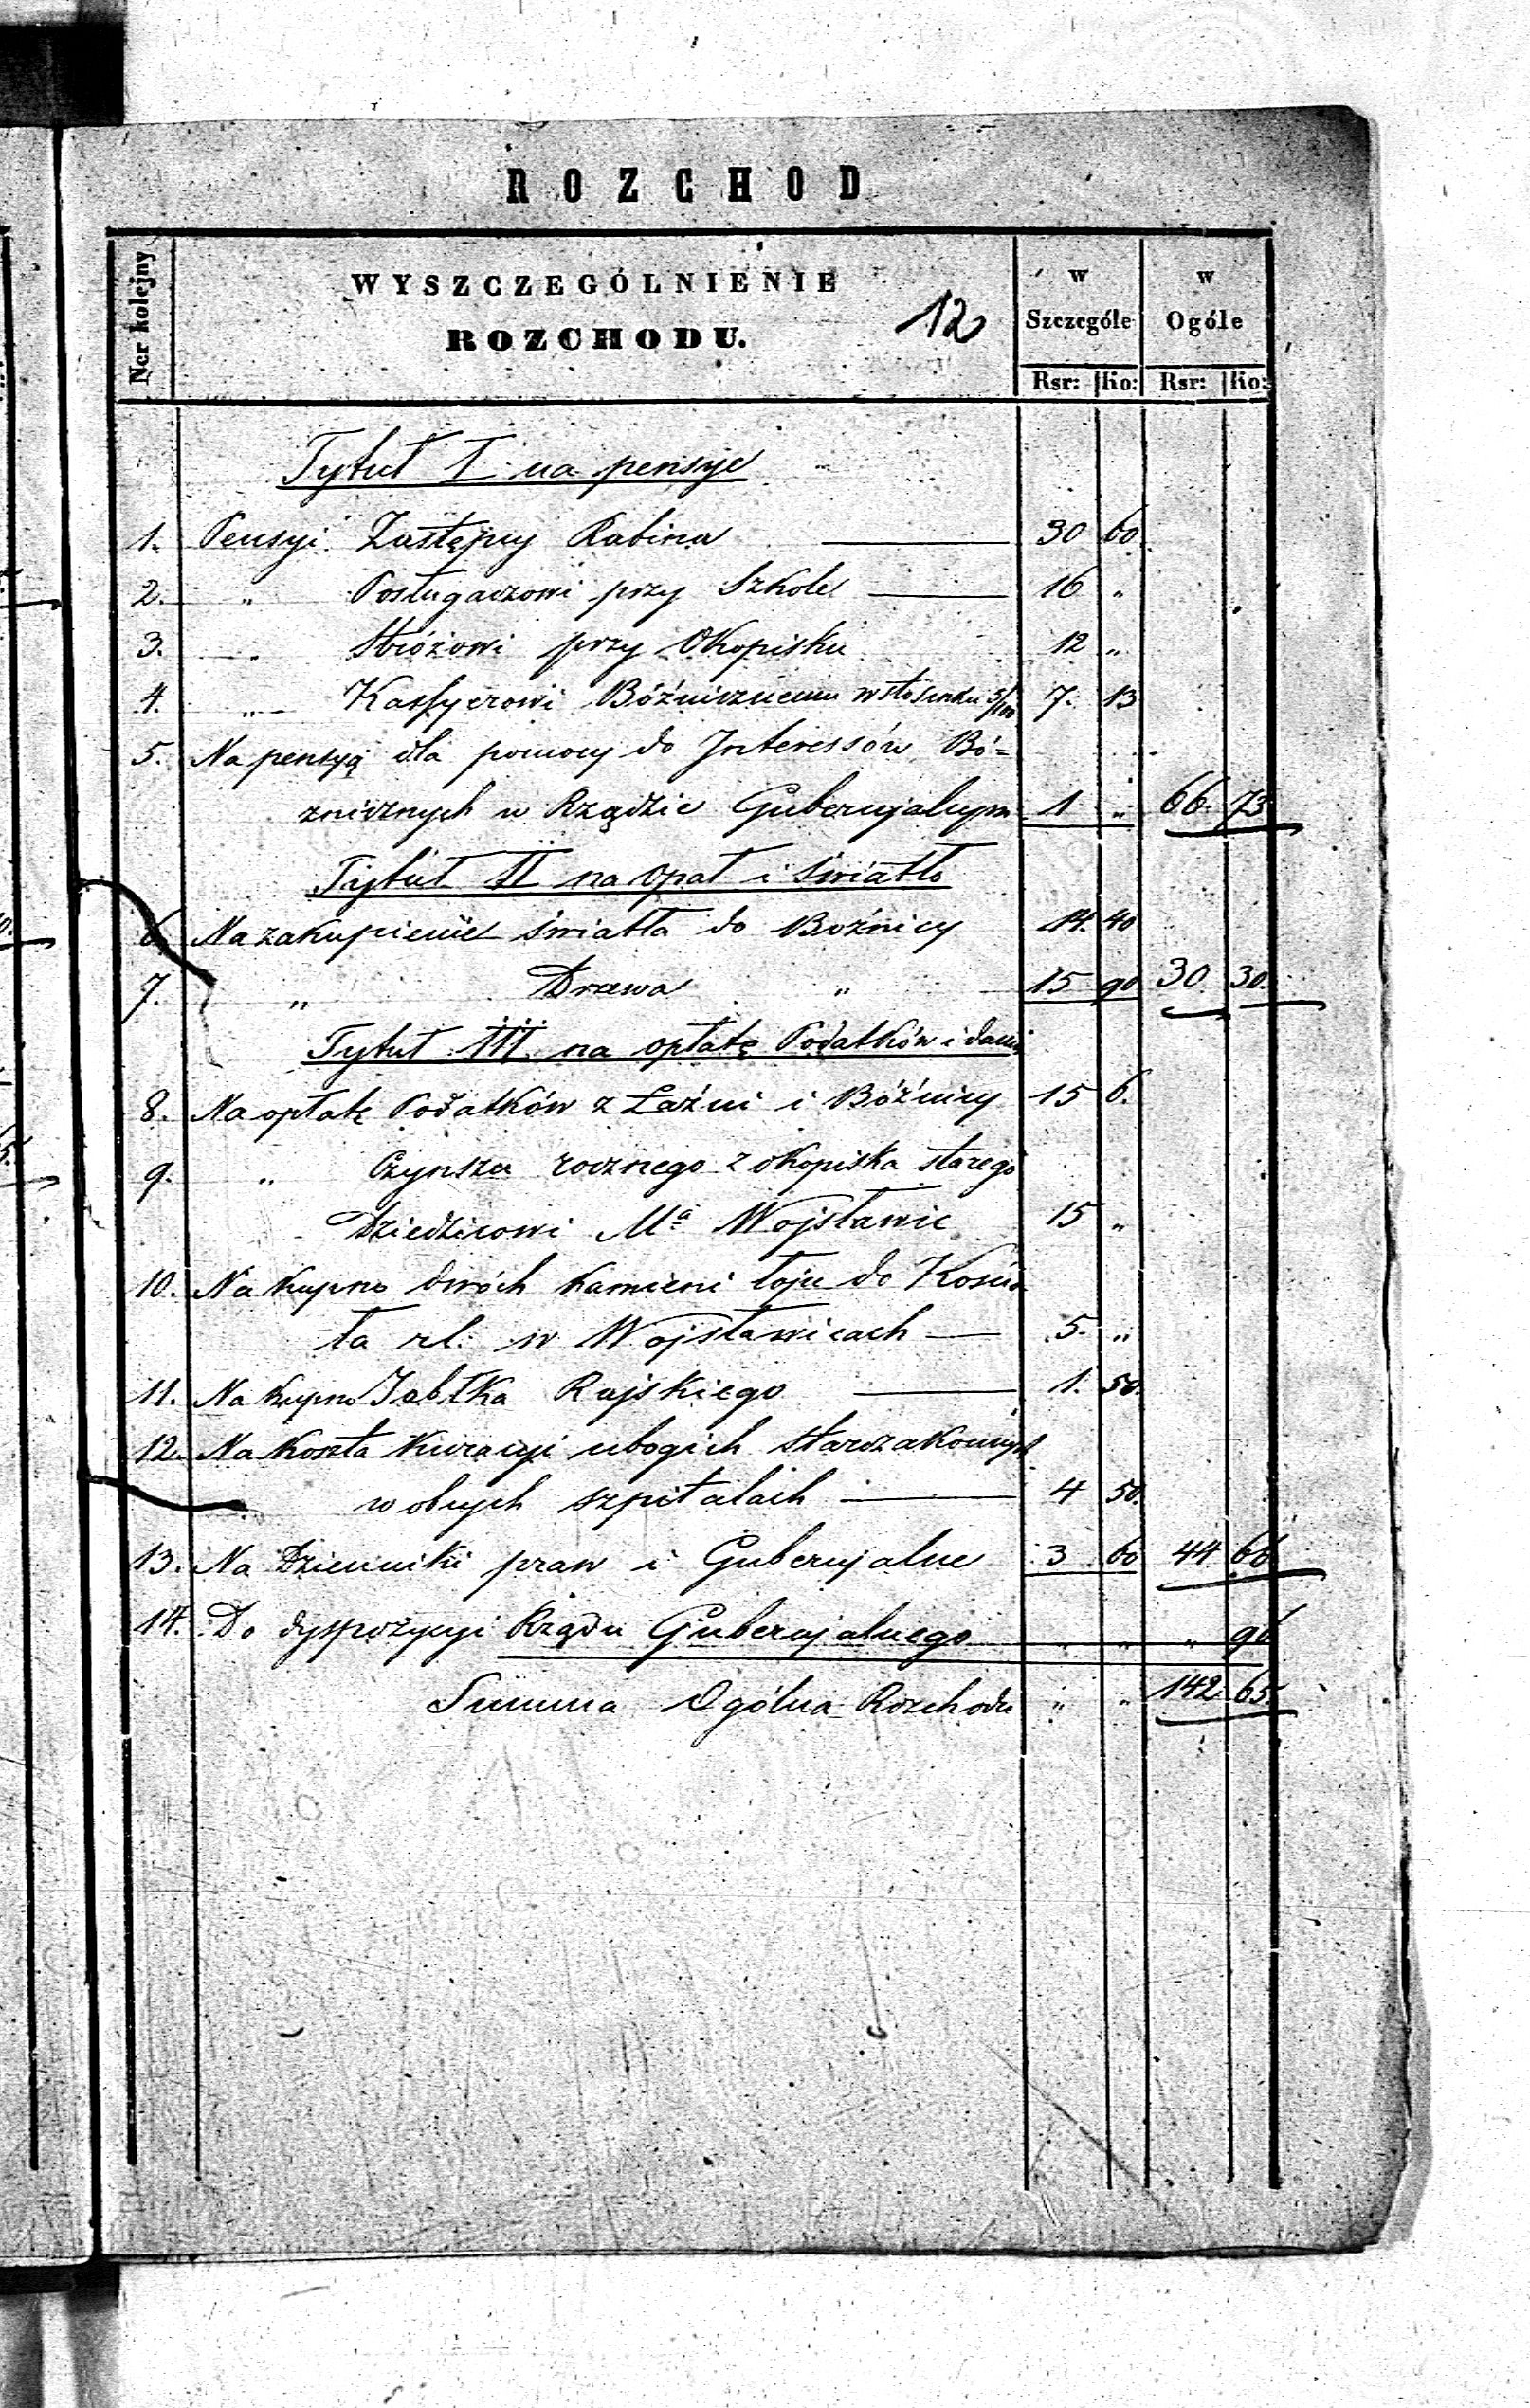 ROZCHOD
Ner kolejny
WYSZCZEGÓLNIENIE
ROZCHODU.
12
w Szczególe
w Ogóle
Rsr: Ko: Rsr: Ko:
Tytuł I na pensye
1. Pensyi Zastępcy Rabina 30 60
2. " Posługaczowi przy Szkole 16 "
3. " Stróżowi przy Okopisku 12 "
4. " Kassyerowi Bóźnicznemu w stosunku 5/100 7. 13
5. Na pensyą dla pomocy do Interessów Bó=
znicznych w Rządzie Gubernjalnym 1 " 66. 73
Tytuł II na opał i światło
6. Na zakupienie światła do Boźnicy 14. 40
7. " Drzewa " 15 90 30 30.
Tytuł III na opłatę Podatków i danin
8. Na opłatę Podatków z Łaźni i Bóźnicy 15 6.
9. " Czynszu rocznego z okopiska starego
Dziedzicowi Mᵃ Wojsławic 15 "
10. Na kupno dwóch kamieni łoju do Kościo
ła rl: w Wojsławicach 5. "
11. Na kupno Jabłka Rajskiego 1. 50.
12. Na koszta kuracyi ubogich starozakonnych
w obcych szpitalach 4 50.
13. Na Dzienniki praw i Gubernjalne 3 60 44 66
14. Do dyspozycyi Rządu Gubernjalnego " " " 96
Summa Ogólna Rozchodu " " 142 65.